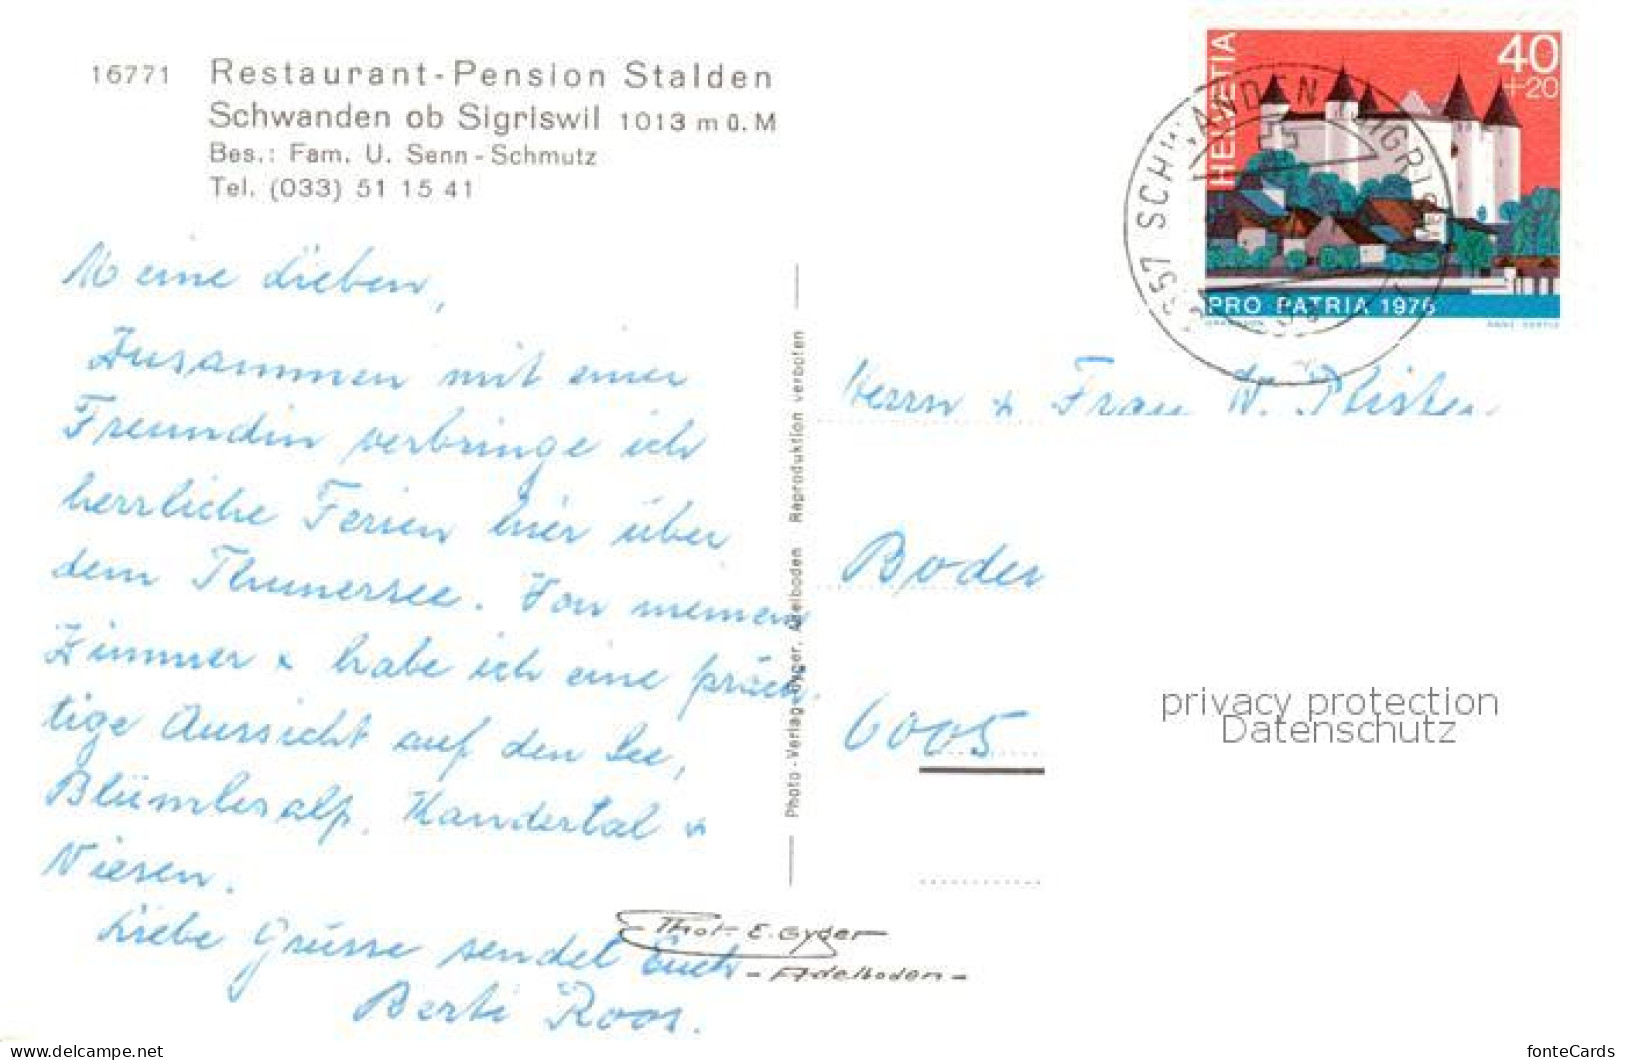 16771 Restaurant-Pension Stalden
Schwanden ob Sigriswil 1013 m ü. M
Bes.: Fam. U. Senn-Schmutz
Tel. (033) 51 15 41
HELVETIA
40
+20
PRO PATRIA 1976
3657 SCHWANDEN (SIGRISWIL)
Meine Lieben,
Zusammen mit einer
Freundin verbringe ich
herrliche Ferien hier über
dem Thunersee. Von meinem
Zimmer & habe ich eine präch-
tige Aussicht auf den See,
Blümlisalp, Kandertal &
Niesen.
Liebe Grüsse sendet Euch
Berti Roos.
Photo-Verlag Gyger, Adelboden Reproduktion verboten
Phot. E. Gyger
- Adelboden -
Herrn & Frau W.
6005
privacy protection
Datenschutz
www.delcampe.net
fonteCards